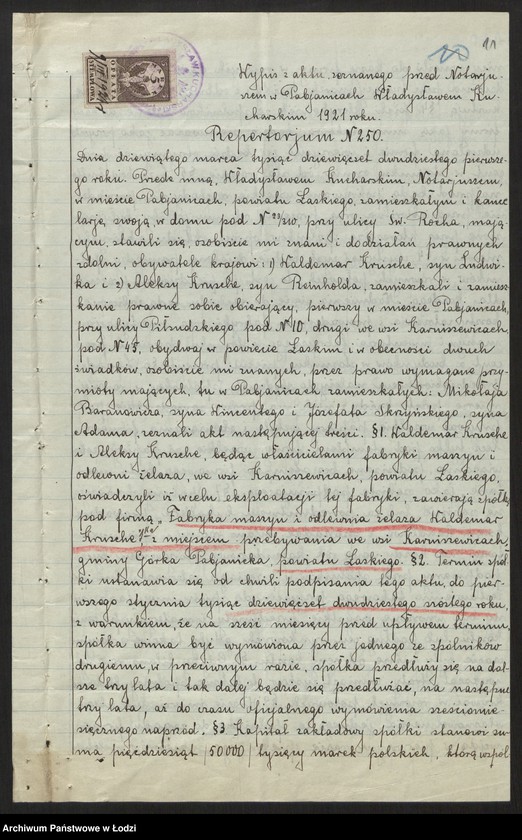 11
Wypis z aktu, zeznanego przed Notarju-
szem w Pabjanicach Władysławem Ku-
charskim 1921 roku.
Repertorjum N 250.
Dnia dziewiątego marca tysiąc dziewięćset dwudziestego pierwsze-
go roku. Przede mną, Władysławem Kucharskim, Notarjuszem,
w mieście Pabjanicach, powiatu Łaskiego, zamieszkałym i kance-
larję swoją, w domu pod N 22/210, przy ulicy Św. Rocha, mają-
cym, stawili się, osobiście mi znani i do działań prawnych
zdolni, obywatele krajowi: 1) Waldemar Krusche, syn Ludwi-
ka i 2) Aleksy Krusche, syn Reinholda, zamieszkali i zamiesz-
kanie prawne sobie obierający, pierwszy w mieście Pabjanicach,
przy ulicy Piłsudskiego pod N 10, drugi we wsi Karniszewicach,
pod N 45, obydwaj w powiecie Łaskim i w obecności dwuch
świadków, osobiście mi znanych, przez prawo wymagane przy-
mioty mających, tu w Pabjanicach zamieszkałych: Mikołaja
Baranowicza, syna Wincentego i Józefata Skrzyńskiego, syna
Adama, zeznali akt następującej treści. §1. Waldemar Krusche
i Aleksy Krusche, będąc właścicielami fabryki maszyn i
odlewni żelaza, we wsi Karniszewicach, powiatu Łaskiego,
oświadczyli iż w celu eksploatacji tej fabryki, zawierają spółkę
pod firmą „Fabryka maszyn i odlewnia żelaza Waldemar
Krusche i S-ka" z miejscem przebywania we wsi Karniszewicach,
gminy Górka Pabjanicka, powiatu Łaskiego. §2. Termin spół-
ki ustanawia się od chwili podpisania tego aktu, do pier-
wszego stycznia tysiąc dziewięćset dwudziestego szóstego roku,
z warunkiem, że na sześć miesięcy przed upływem terminu,
spółka winna być wymówiona przez jednego ze spólników
drugiemu, w przeciwnym razie, spółka przedłuży się na dal-
sze trzy lata i tak dalej będzie się przedłużać, na następne
trzy lata, aż do czasu oficjalnego wymówienia sześciomie-
sięcznego naprzód. §3 Kapitał zakładowy spółki stanowi su-
ma pięćdziesiąt /50000/ tysięcy marek polskich, którą wspól-
OPŁATA
STEMPLOWA
Archiwum Państwowe w Łodzi